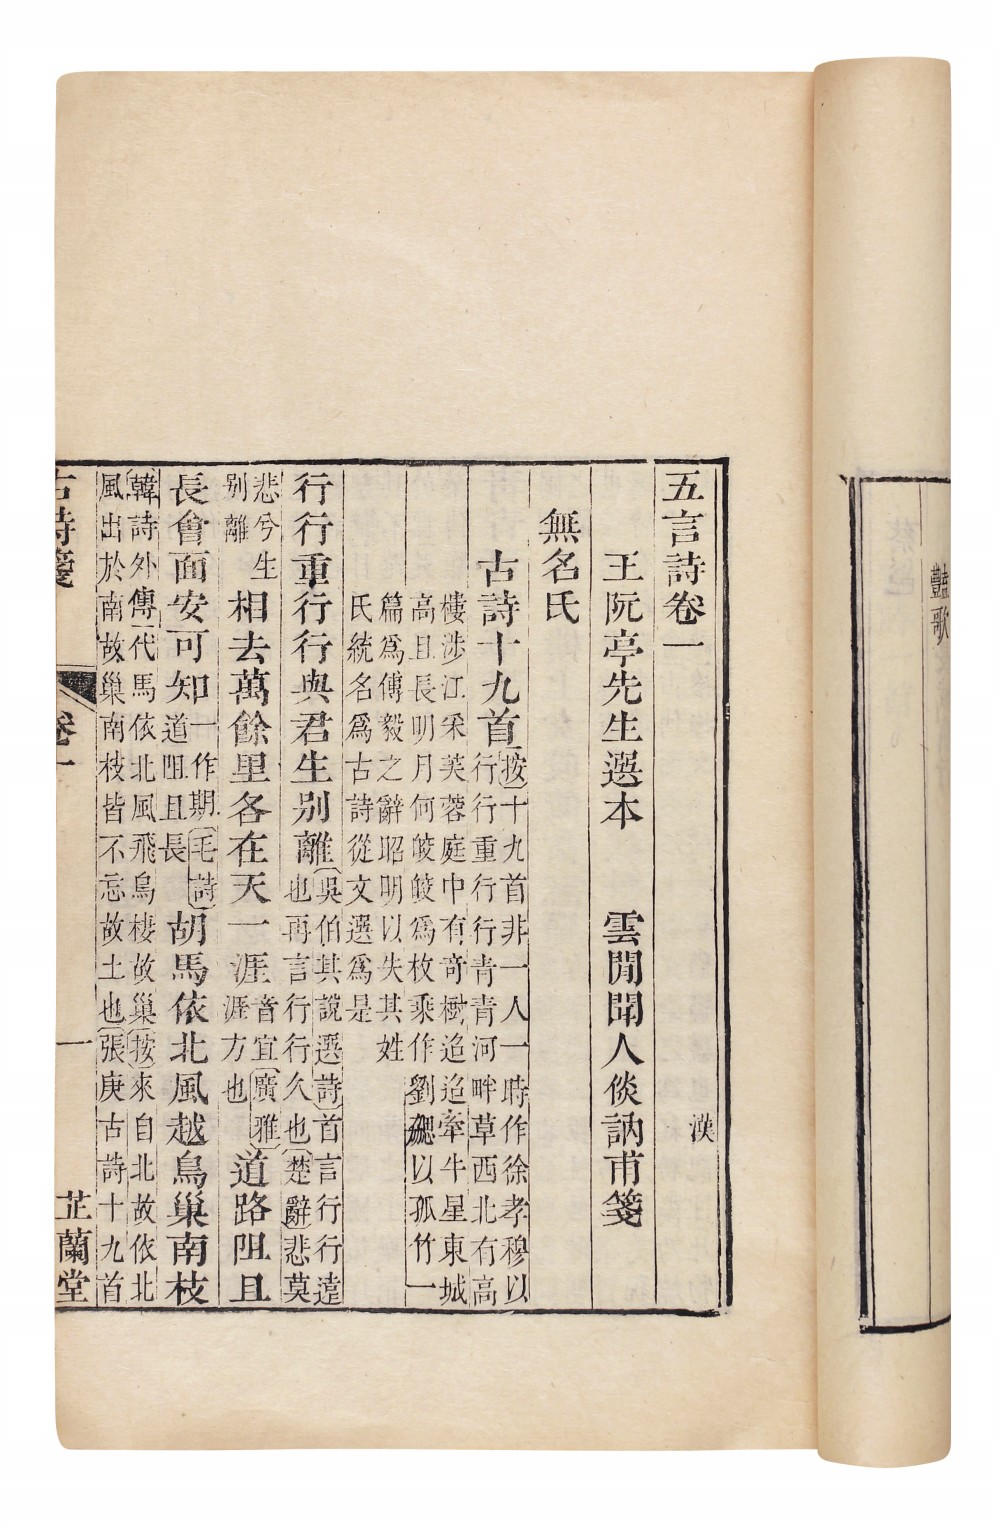 豔歌
五言詩卷一 漢
王阮亭先生選本 雲閒聞人倓訥甫箋
無名氏
古詩十九首 按十九首非一人一時作徐孝穆以
行行重行行青青河畔草西北有高
樓涉江采芙蓉庭中有竒樹迢迢牽牛星東城
高且長明月何皎皎爲枚乘作劉勰以孤竹一
篇爲傅毅之辭昭明以失其姓
氏統名爲古詩從文選爲是
行行重行行與君生别離 吳伯其說選詩首言行行遠
也再言行行久也楚辭悲莫
悲兮生
别離
相去萬餘里各在天一涯 音宜廣雅
涯方也
道路阻且
長會面安可知 一作期毛詩
道阻且長
胡馬依北風越鳥巢南枝
韓詩外傳代馬依北風飛鳥棲故巢按來自北故依北
風出於南故巢南枝皆不忘故土也張庚古詩十九首
古詩箋 卷一 一 芷蘭堂